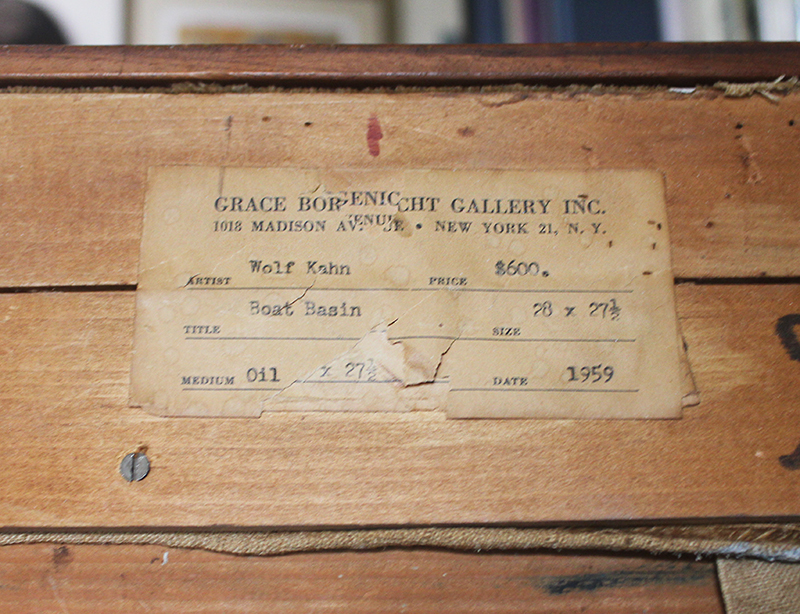 GRACE BORGENICHT GALLERY INC.
1018 MADISON AVENUE • NEW YORK 21, N. Y.
ARTIST Wolf Kahn PRICE $600.
TITLE Boat Basin SIZE 28 x 27½
MEDIUM Oil x 27½ DATE 1959